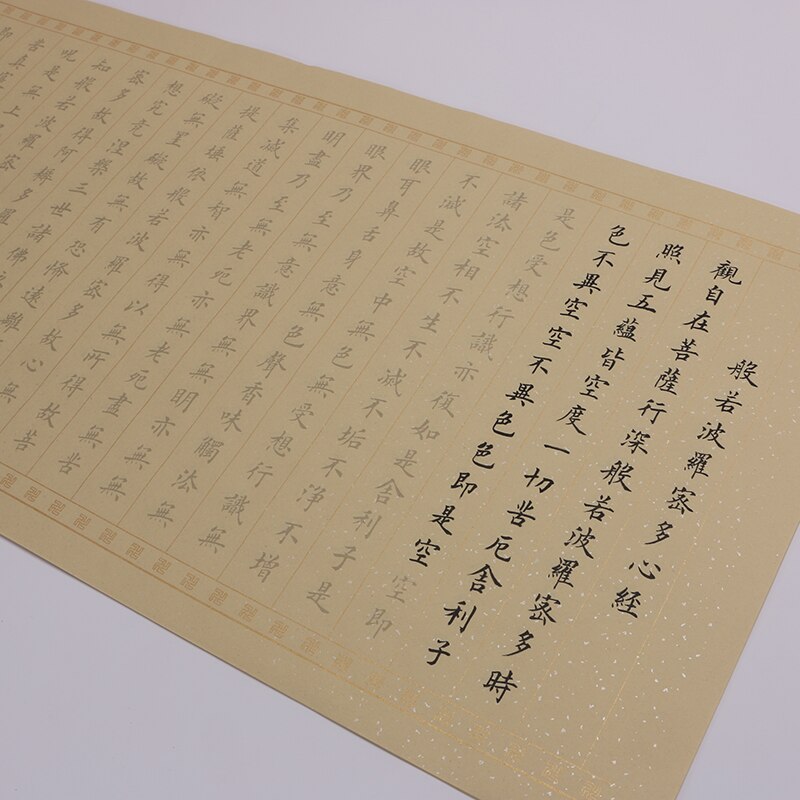 般若波羅密多心経
觀自在菩薩行深般若波羅密多時
照見五蘊皆空度一切苦厄舍利子
色不異空空不異色色即是空空即
是色受想行識亦復如是舍利子是
諸法空相不生不滅不垢不浄不增
不減是故空中無色無受想行識無
眼耳鼻舌身意無色聲香味觸法無
眼界乃至無意識界無無明亦無無
明盡乃至無老死亦無老死盡無苦
集滅道無智亦無得以無所得故菩
提薩埵依般若波羅密多故心無
礙無罣礙故無有恐怖遠離
想究竟涅槃三世諸佛
密多故得阿耨多羅
知般若波羅密
呪是無上
苦真實
即